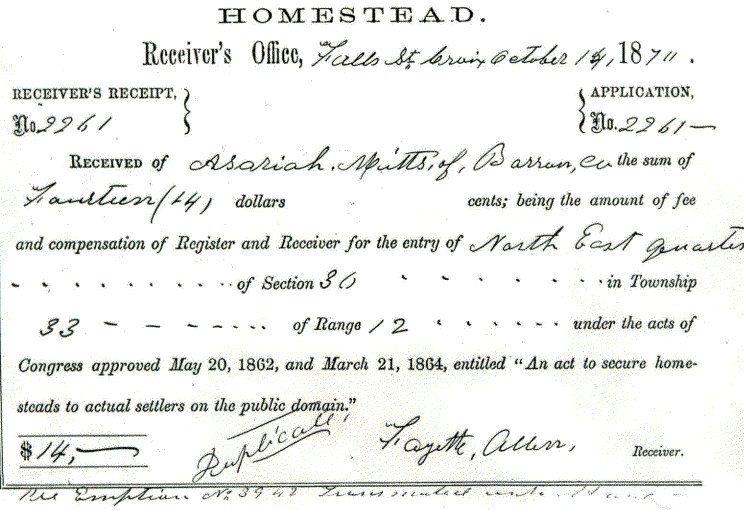 HOMESTEAD.
Receiver's Office, Falls St. Croix October 14, 1871.
RECEIVER'S RECEIPT, No. 2261
APPLICATION, No. 2261
RECEIVED of Asariah Mitts, of, Barron, co the sum of
Fourteen (14) dollars cents; being the amount of fee
and compensation of Register and Receiver for the entry of North East quarter
of Section 30 in Township
33 of Range 12 under the acts of
Congress approved May 20, 1862, and March 21, 1864, entitled "An act to secure home-
steads to actual settlers on the public domain."
$14,
Duplicate,
Fayette, Allen, Receiver.
Pre Emption No. 3942